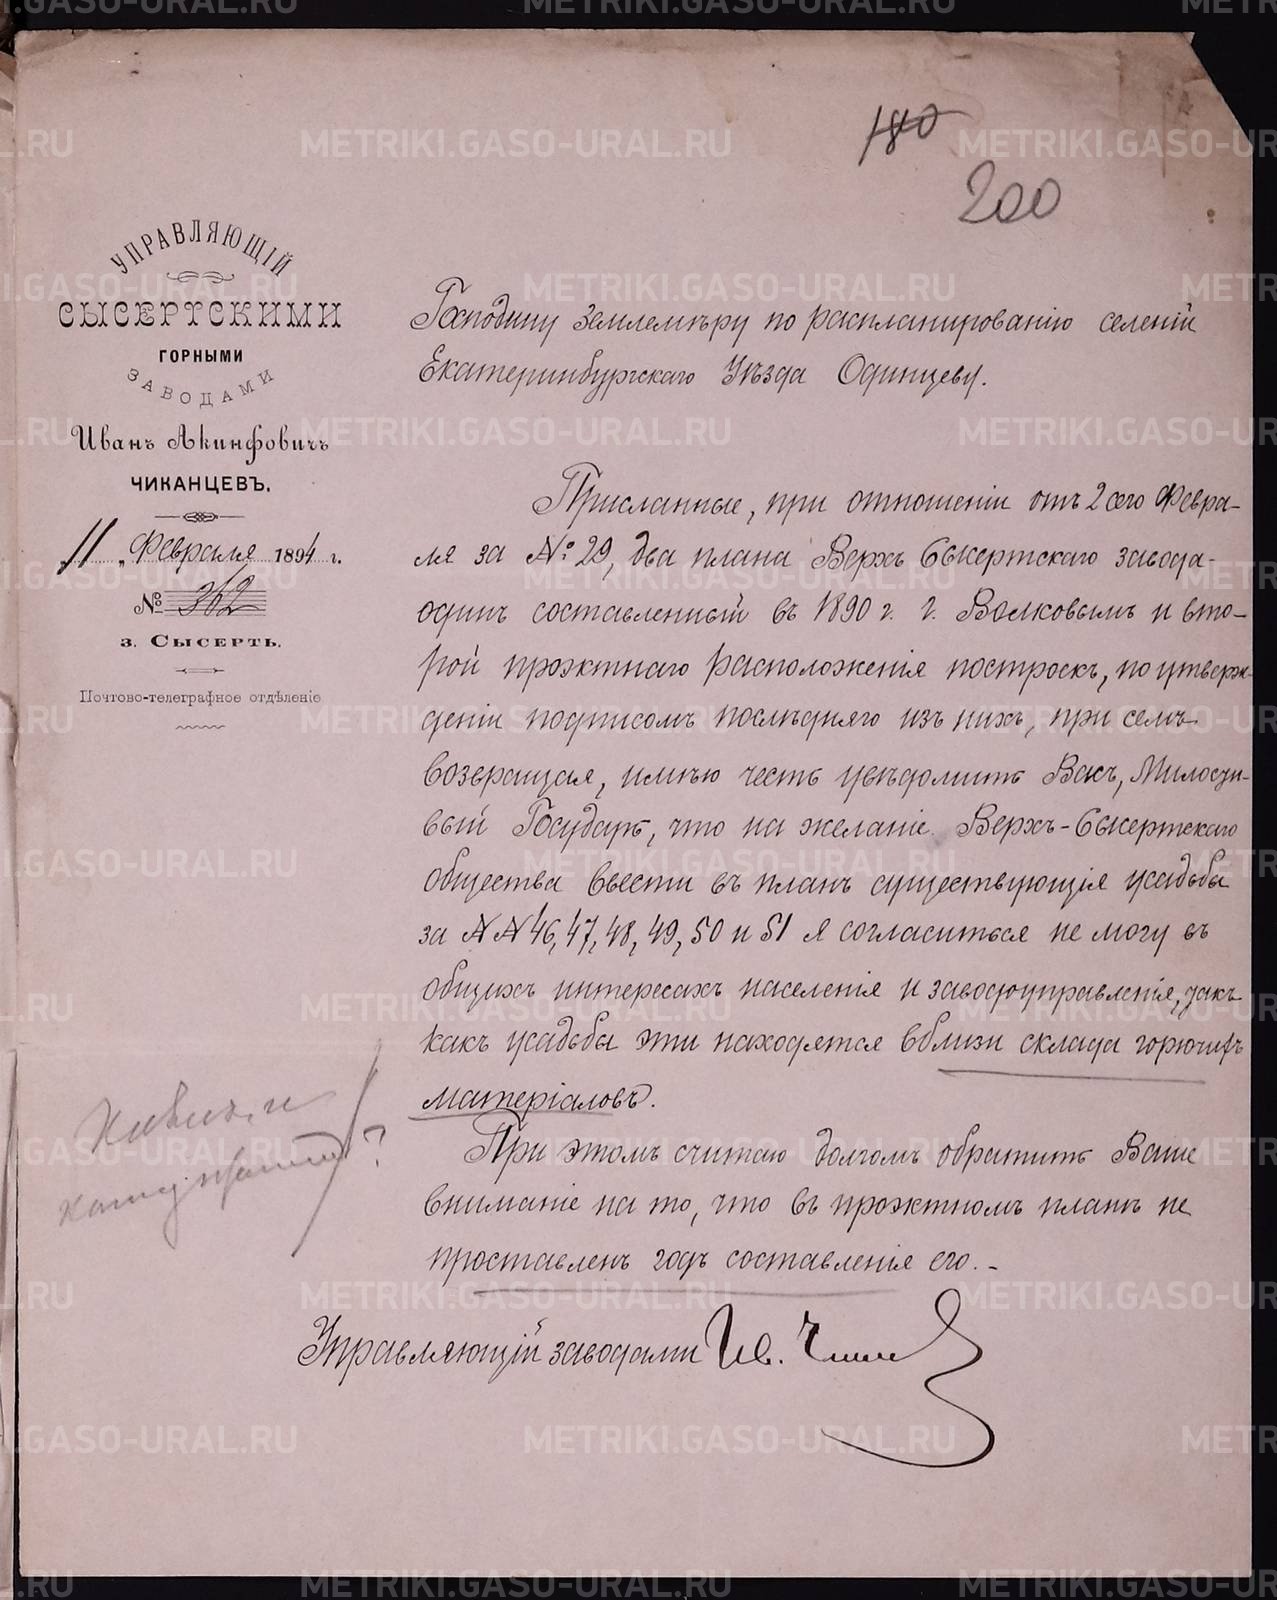 180
200
УПРАВЛЯЮЩІЙ
СЫСЕРТСКИМИ
ГОРНЫМИ
ЗАВОДАМИ
Иванъ Акинфовичъ
ЧИКАНЦЕВЪ.
11 „ Февраля 1894 г.
№ 362
з. Сысерть.
Почтово-телеграфное отдѣленіе
Господину Землемѣру по распланированію селеній
Екатеринбургскаго Уѣзда Одинцеву.
Присланные, при отношеніи отъ 2 сего Февра-
ля за № 29, два плана Верхъ Сысертскаго завода-
одинъ составленный въ 1890 г. г. Волковымъ и вто-
рой проэктнаго расположенія построекъ, по утверж-
деніи подписомъ послѣдняго изъ нихъ, при семъ
возвращая, имѣю честь увѣдомить Васъ, Милости-
вый Государь, что на желаніе Верхъ-Сысертскаго
общества ввести въ планъ существующія усадьбы
за NN 46, 47, 48, 49, 50 и 51 я согласиться не могу въ
общихъ интересахъ населенія и заводоуправленія, такъ
какъ усадьбы эти находятся вблизи склада горючихъ
матеріаловъ.
При этомъ считаю долгомъ обратить Ваше
вниманіе на то, что въ проэктномъ планѣ не
проставленъ годъ составленія его.-
Управляющій заводами Ив.
METRIKI.GASO-URAL.RU